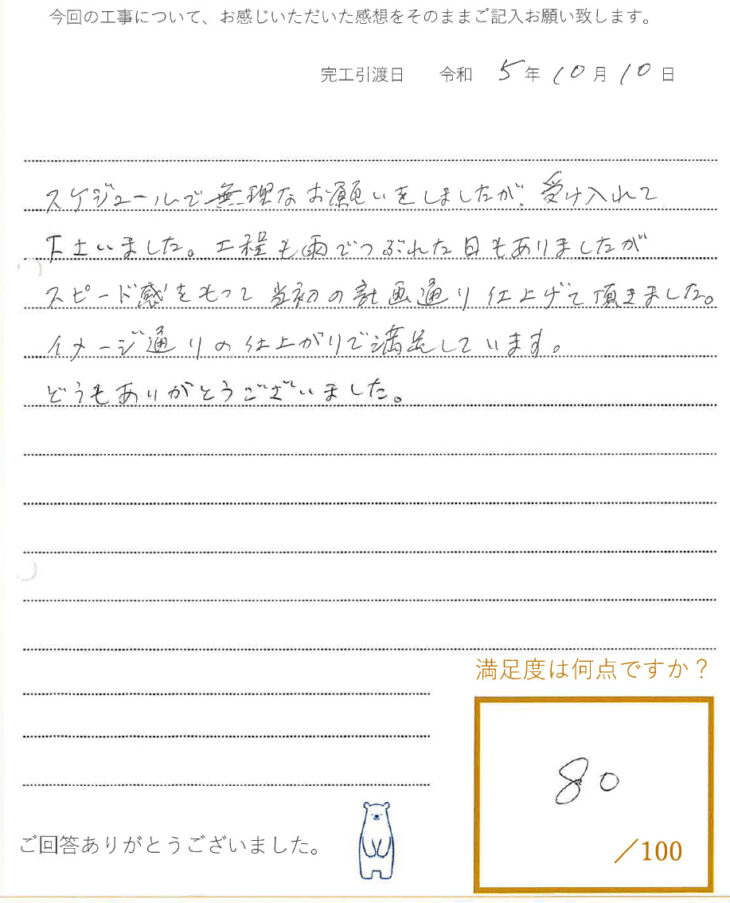 今回の工事について、お感じいただいた感想をそのままご記入お願い致します。
完工引渡日 令和 5年 10月 10日
スケジュールで無理なお願いをしましたが、受け入れて
下さいました。工程も雨でつぶれた日もありましたが
スピード感をもって当初の計画通り仕上げて頂きました。
イメージ通りの仕上がりで満足しています。
どうもありがとうございました。
満足度は何点ですか？
80
／100
ご回答ありがとうございました。